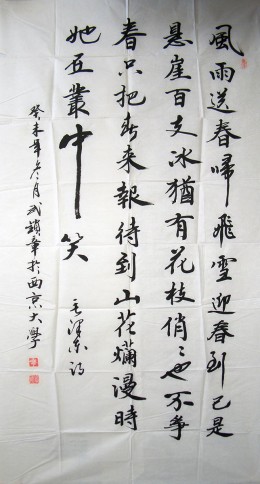 風雨送春歸飛雪迎春到已是
悬崖百丈冰猶有花枝俏〻也不争
春只把春來報待到山花爛漫時
她在叢中笑
毛澤東詞
癸未年冬月武鎖章於西京大學